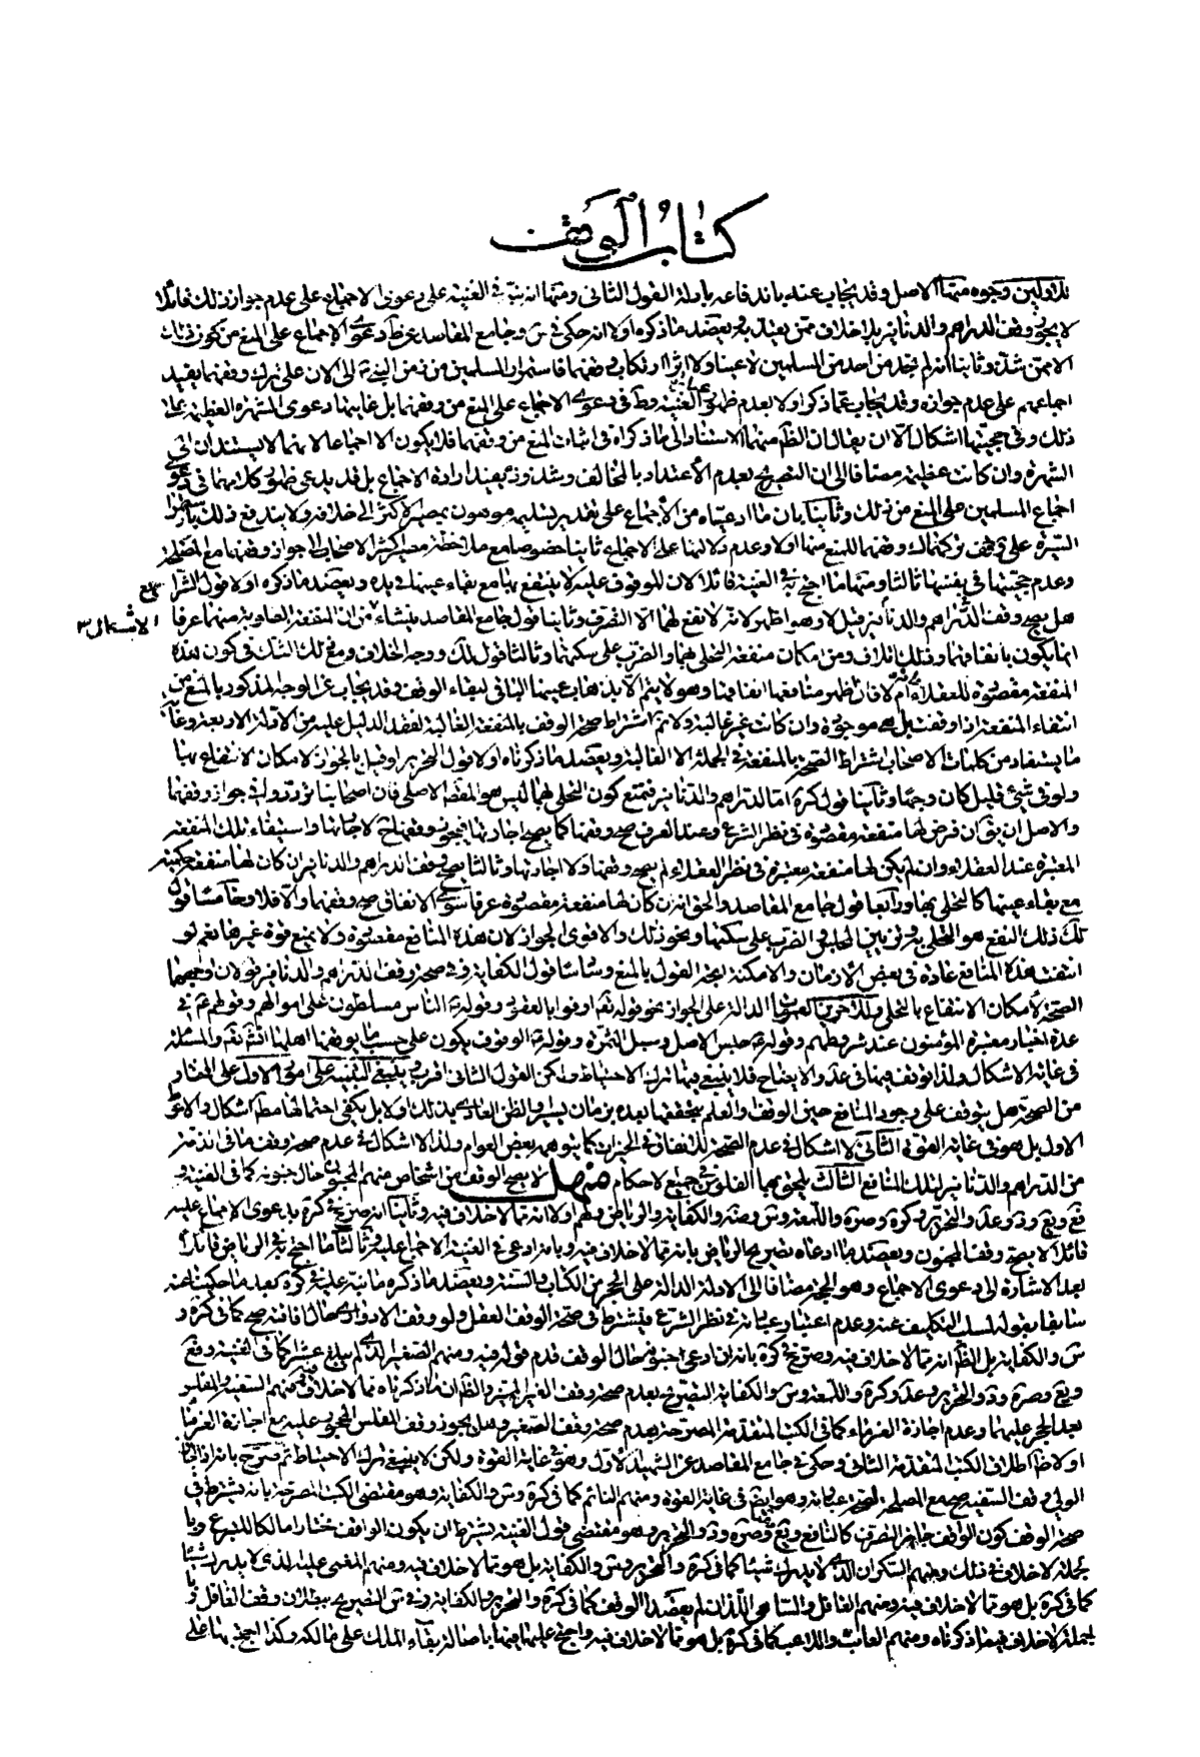 كتاب الوقف
للاولين وجوه منها الاصل وقد يجاب عنه باندفاعه بادلة القول الثانى ومنها انه نبه فى الغنية على دعوى الاجماع على عدم جواز ذلك قائلا
لا يجوز وقف الدراهم والدنانير بلا خلاف ممن يعتد به ويعضد ما ذكره اولا انه حكى فى س وجامع المقاصد عن ط دعوى الاجماع على المنع من
الا ممن شذ وثانيا انه لم نجد من احد من المسلمين لا عينا ولا اثرا ارتكاب وقفهما فاستمرار المسلمين من زمن النبى الى الان على ترك وقفهما يفيد
اجماعهم على عدم جوازه وقد يجاب عما ذكر اولا بعدم ظهور الغنية وط فى دعوى الاجماع على المنع من وقفهما بل غايتهما دعوى الشهرة العظيمة على
ذلك وفى حجيتها اشكال الا ان يقال ان الظ منهما الاستناد الى ما ذكراه فى اثبات المنع من وقفهما فلا يكون الا اجماعا لانهما لا يستندان الى
الشهرة وان كانت عظيمة مضافا الى ان التصريح بعدم الاعتداد بالمخالف وشذوذه يفيد ارادة الاجماع بل قد يدعى ظهور كلامهما فى دعوى
اجماع المسلمين على المنع من ذلك وثانيا بان ما ادعيناه من الاجماع على تقدير تسليمه موهون بمصير الاكثر الى خلافه ولا يندفع ذلك باستمرار
السيرة على ترك وقفهما للمنع منها اولا وعدم دلالتها على الاجماع ثانيا خصوصا مع ملاحظة مصير اكثر الاصحاب الى جواز وقفهما مع المصلحة
وعدم حجيتها فى نفسها ثالثا ومنها ما احتج به فى الغنية قائلا لان الموقوف عليه لا ينتفع بها مع بقاء عينها فى يده ويعضد ما ذكره اولا قول الشرايع
هل يصح وقف الدراهم والدنانير قيل لا وهو اظهر لانه لا نفع لهما الا التصرف وثانيا قول جامع المقاصد ينشاء من ان المنفعة المطلوبة منهما عرفا
الاشكال
انما يكون بانفاقهما وذلك اتلاف ومن امكان منفعة التحلى بهما والضرب على سكتهما وثالثا قول لك ووجه الخلاف ومع ذلك الشك فى كون هذه
المنفعة مقصودة للعقلاء ام لا فان اظهر منافعها انفاقها وهو لا يتم الا بذهاب عينها المنافى لبقاء الوقف وقد يجاب عن الوجه المذكور بالمنع من
انتفاء المنفعة اذا وقفت بل هى موجودة وان كانت غير غالبة ولا نم اشتراط صحة الوقف بالمنفعة الغالبة لفقد الدليل عليه من الادلة الاربعة وغاية
ما يستفاد من كلمات الاصحاب اشتراط الصحة بالمنفعة فى الجملة لا الغالبة ويعضد ما ذكرناه اولا قول التحرير وقيل بالجواز لامكان الانتفاع بها
ولو فى شىء قليل كان وجها وثانيا قول كرة اما الدراهم والدنانير فنمنع كون التحلى بهما ليس هو المقصد الاصلى فان اصحابنا ترددوا فى جواز وقفها
والاصل ان نقول ان فرض لها منفعة مقصودة فى نظر الشرع وعند العرف صح وقفها كما يصح اجارتها فيجوز وقفها لاجارتها واستيفاء تلك المنفعة
المعتبرة عند العقلاء وان لم يكن لها منفعة معتبرة فى نظر العقلاء لم يصح وقفها ولا اجارتها وثالثا يصح وقف الدراهم والدنانير ان كان لها منفعة حكمية
مع بقاء عينها كالتحلى بها ورابعا قول جامع المقاصد والحق انه ان كان لها منفعة مقصودة عرفا سوى الانفاق صح وقفهما والا فلا وخامسا قول
لك ذلك النفع هو التحلى به وتزيين المجلس والضرب على سكتها ونحو ذلك والاقوى الجواز لان هذه المنافع مقصودة ولا يمنع قوة غيرها نعم لو
انتفت هذه المنافع عادة فى بعض الازمان والامكنة اتجه القول بالمنع وسادسا قول الكفاية وفى صحة وقف الدراهم والدنانير قولان اوجههما
الصحة لامكان الانتفاع بالتحلى وللاخرين العمومات الدالة على الجواز نحو قوله تعالى اوفوا بالعقود وقوله الناس مسلطون على اموالهم وقولهم فى
عدة اخبار معتبرة المؤمنون عند شروطهم وقوله حبس الاصل وسبل الثمرة وقوله الوقوف يكون على حسب ما يوقفها اهلها انشاء الله تعالى والمسئلة
فى غاية الاشكال ولذا توقف فيها فى عد والايضاح فلا ينبغى فيها ترك الاحتياط ولكن القول الثانى اقرب وينبغى التنبيه على امور الاول على المختار
من الصحة هل يتوقف على وجود المنافع حين الوقف والعلم بتحققها بعده بزمان يسير والظن العادى بذلك اولا بل يكفى احتمالها فيه اشكال والاقوى
الاول بل هو فى غاية القوة الثانى لا اشكال فى عدم الصحة للانفاق فى الخيرات كما يتوهمه بعض العوام ولذا لا اشكال فى عدم صحة وقف ما فى الذمة
من الدراهم والدنانير لتلك المنافع الثالث يلحق بهما الفلوس فى جميع الاحكام منهل لا يصح الوقف من اشخاص منهم المجنون حال جنونه كما فى الغنية و
فع ويع ود وعد والتحرير وكرة وصرة واللمعة وس وضة والكفاية والرياض ولهم اولا انه مما لا خلاف فيه وثانيا انه صرح فى كرة بدعوى الاجماع عليه
قائلا لا يصح وقف المجنون ويعضد ما ادعاه تصريح الرياض بانه مما لا خلاف فيه وبانه ادعى فى الغنية الاجماع عليه وثالثا ما احتج به فى الرياض قائلا
بعد الاشارة الى دعوى الاجماع وهو الحجة مضافا الى الادلة الدالة على الحجر من الكتاب والسنة ويعضد ما ذكره ما نبه عليه فى كرة بعد ما حكيناه عنه
سابقا بقوله لسلب التكليف عنه وعدم اعتبار عبارته فى نظر الشرع فيشترط فى صحة الوقف العقل ولو وقف الادوارى حال افاقته صح كما فى كرة و
س والكفاية بل الظ انه مما لا خلاف فيه وصرح فى كرة بانه ان ادعى جنونه حال الوقف قدم قوله فيه ومنهم الصغير الذى لم يبلغ عشرا كما فى الغنية وفع
ويع وصرة ود والتحرير وعد وكرة واللمعة وس والكفاية التصريح بعدم صحة وقف الغير المميز والظ ان ما ذكرناه مما لا خلاف فيه ومنهم السفيه والمفلس
بعد الحجر عليهما وعدم اجازة الغرماء كما فى الكتب المتقدمة المصرحة بعدم صحة وقف الصغير وهل يجوز وقف المفلس المحجور عليه مع اجازة الغرماء
او لا ظ اطلاق الكتب المتقدمة الثانى وحكى فى جامع المقاصد عن الشهيد الاول وهو فى غاية القوة ولكن لا ينبغى ترك الاحتياط ثم صرح بانه اذا اذن
الولى وقف السفيه صح مع المصلحة لصحة عبارته وهو ايضا فى غاية القوة ومنهم النائم كما فى كرة وس والكفاية وهو مقتضى الكتب المصرحة بانه يشترط فى
صحة الوقف كون الواقف جايز التصرف كالنافع ويع وصرة ود والتحرير وهو مقتضى قول الغنية يشترط ان يكون الواقف مختارا مالكا للتبرع وبا
لجملة لا خلاف فى ذلك ومنهم السكران الذى لا يدرك شيئا كما فى كرة والتحرير وس والكفاية بل هو مما لا خلاف فيه ومنهم المغمى عليه الذى لا يدرك شيئا
كما فى كرة بل هو مما لا خلاف فيه ومنهم الغافل والساهى اللذان لم يقصدا الوقف كما فى كرة والتحرير والكفاية وفى س التصريح ببطلان وقف الغافل وبا
لجملة لا خلاف فيما ذكرناه ومنهم العابث واللاعب كما فى كرة بل هو مما لا خلاف فيه واحتج عليهما فيها باصالة بقاء الملك على مالكه وكذا احتج بها على